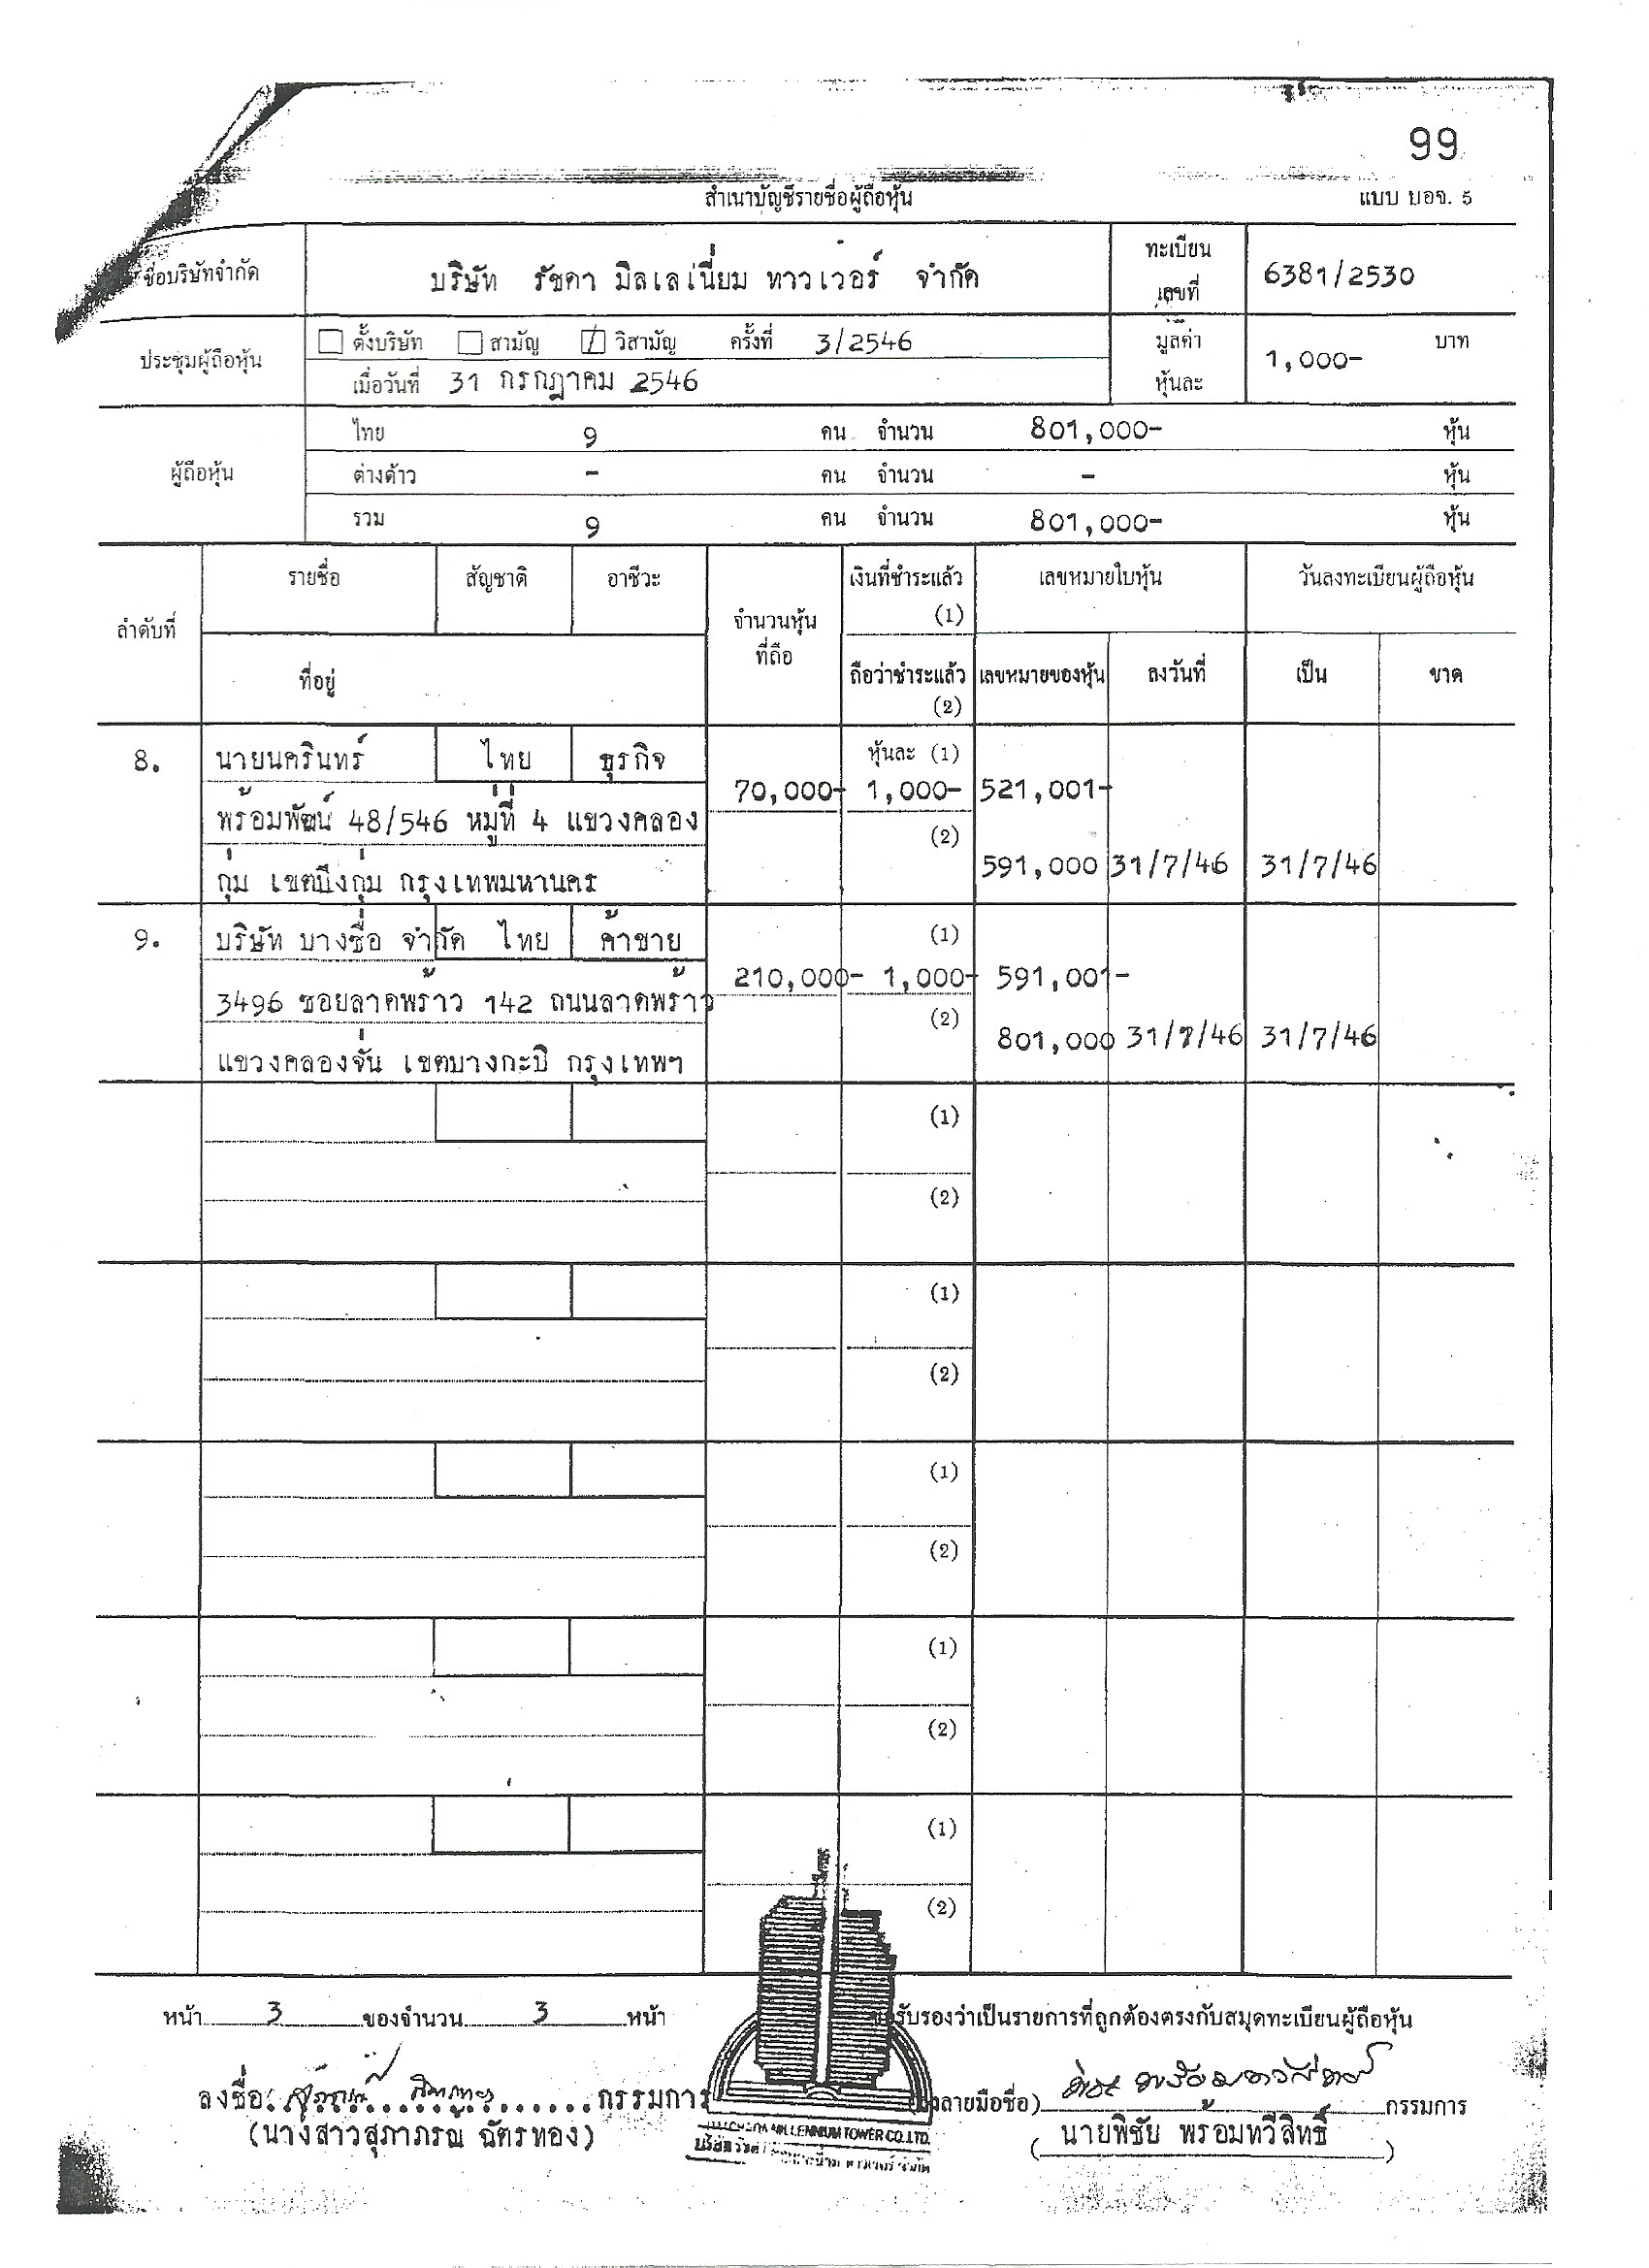 99
สำเนาบัญชีรายชื่อผู้ถือหุ้น แบบ บอจ. 5
ชื่อบริษัทจำกัด บริษัท รัชดา มิลเลเนี่ยม ทาวเวอร์ จำกัด ทะเบียน เลขที่ 6381/2530
ประชุมผู้ถือหุ้น ตั้งบริษัท สามัญ วิสามัญ ครั้งที่ 3/2546 มูลค่า หุ้นละ 1,000- บาท
เมื่อวันที่ 31 กรกฎาคม 2546
ผู้ถือหุ้น
ไทย 9 คน จำนวน 801,000- หุ้น
ต่างด้าว - คน จำนวน - หุ้น
รวม 9 คน จำนวน 801,000- หุ้น
ลำดับที่ รายชื่อ สัญชาติ อาชีวะ จำนวนหุ้น ที่ถือ เงินที่ชำระแล้ว (1) เลขหมายใบหุ้น วันลงทะเบียนผู้ถือหุ้น
ที่อยู่ ถือว่าชำระแล้ว (2) เลขหมายของหุ้น ลงวันที่ เป็น ขาด
8. นายนครินทร์ ไทย ธุรกิจ หุ้นละ (1)
70,000- 1,000- 521,001-
พร้อมพัฒน์ 48/546 หมู่ที่ 4 แขวงคลอง (2)
กุ่ม เขตบึงกุ่ม กรุงเทพมหานคร 591,000 31/7/46 31/7/46
9. บริษัท บางซื่อ จำกัด ไทย ค้าขาย (1)
210,000- 1,000- 591,001-
3496 ซอยลาดพร้าว 142 ถนนลาดพร้าว (2)
801,000 31/7/46 31/7/46
แขวงคลองจั่น เขตบางกะปิ กรุงเทพฯ
(1)
(2)
(1)
(2)
(1)
(2)
(1)
(2)
(1)
(2)
หน้า 3 ของจำนวน 3 หน้า ขอรับรองว่าเป็นรายการที่ถูกต้องตรงกับสมุดทะเบียนผู้ถือหุ้น
ลงชื่อ กรรมการ (ลงลายมือชื่อ) กรรมการ
(นางสาวสุภาภรณ์ ฉัตรทอง) (นายพิชัย พร้อมทวีสิทธิ์)
MILLENNIUM TOWER CO.,LTD.